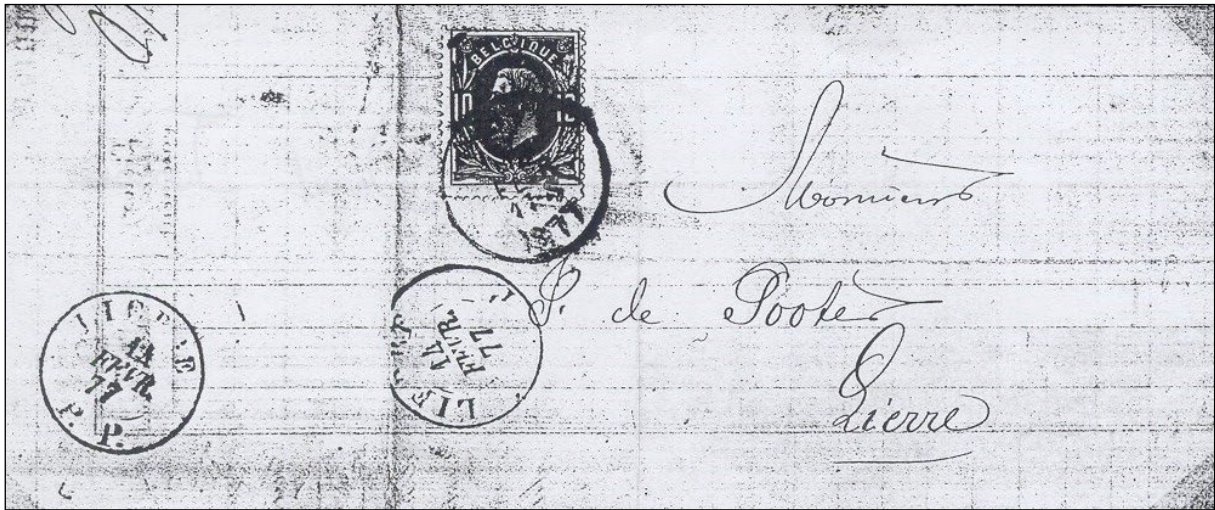 BELGIQUE
10 10
1877
Monsieur
P. de Pooter
Lierre
LIERRE
14
FEVR.
77
LIERRE
14
FEVR.
77
P. P.